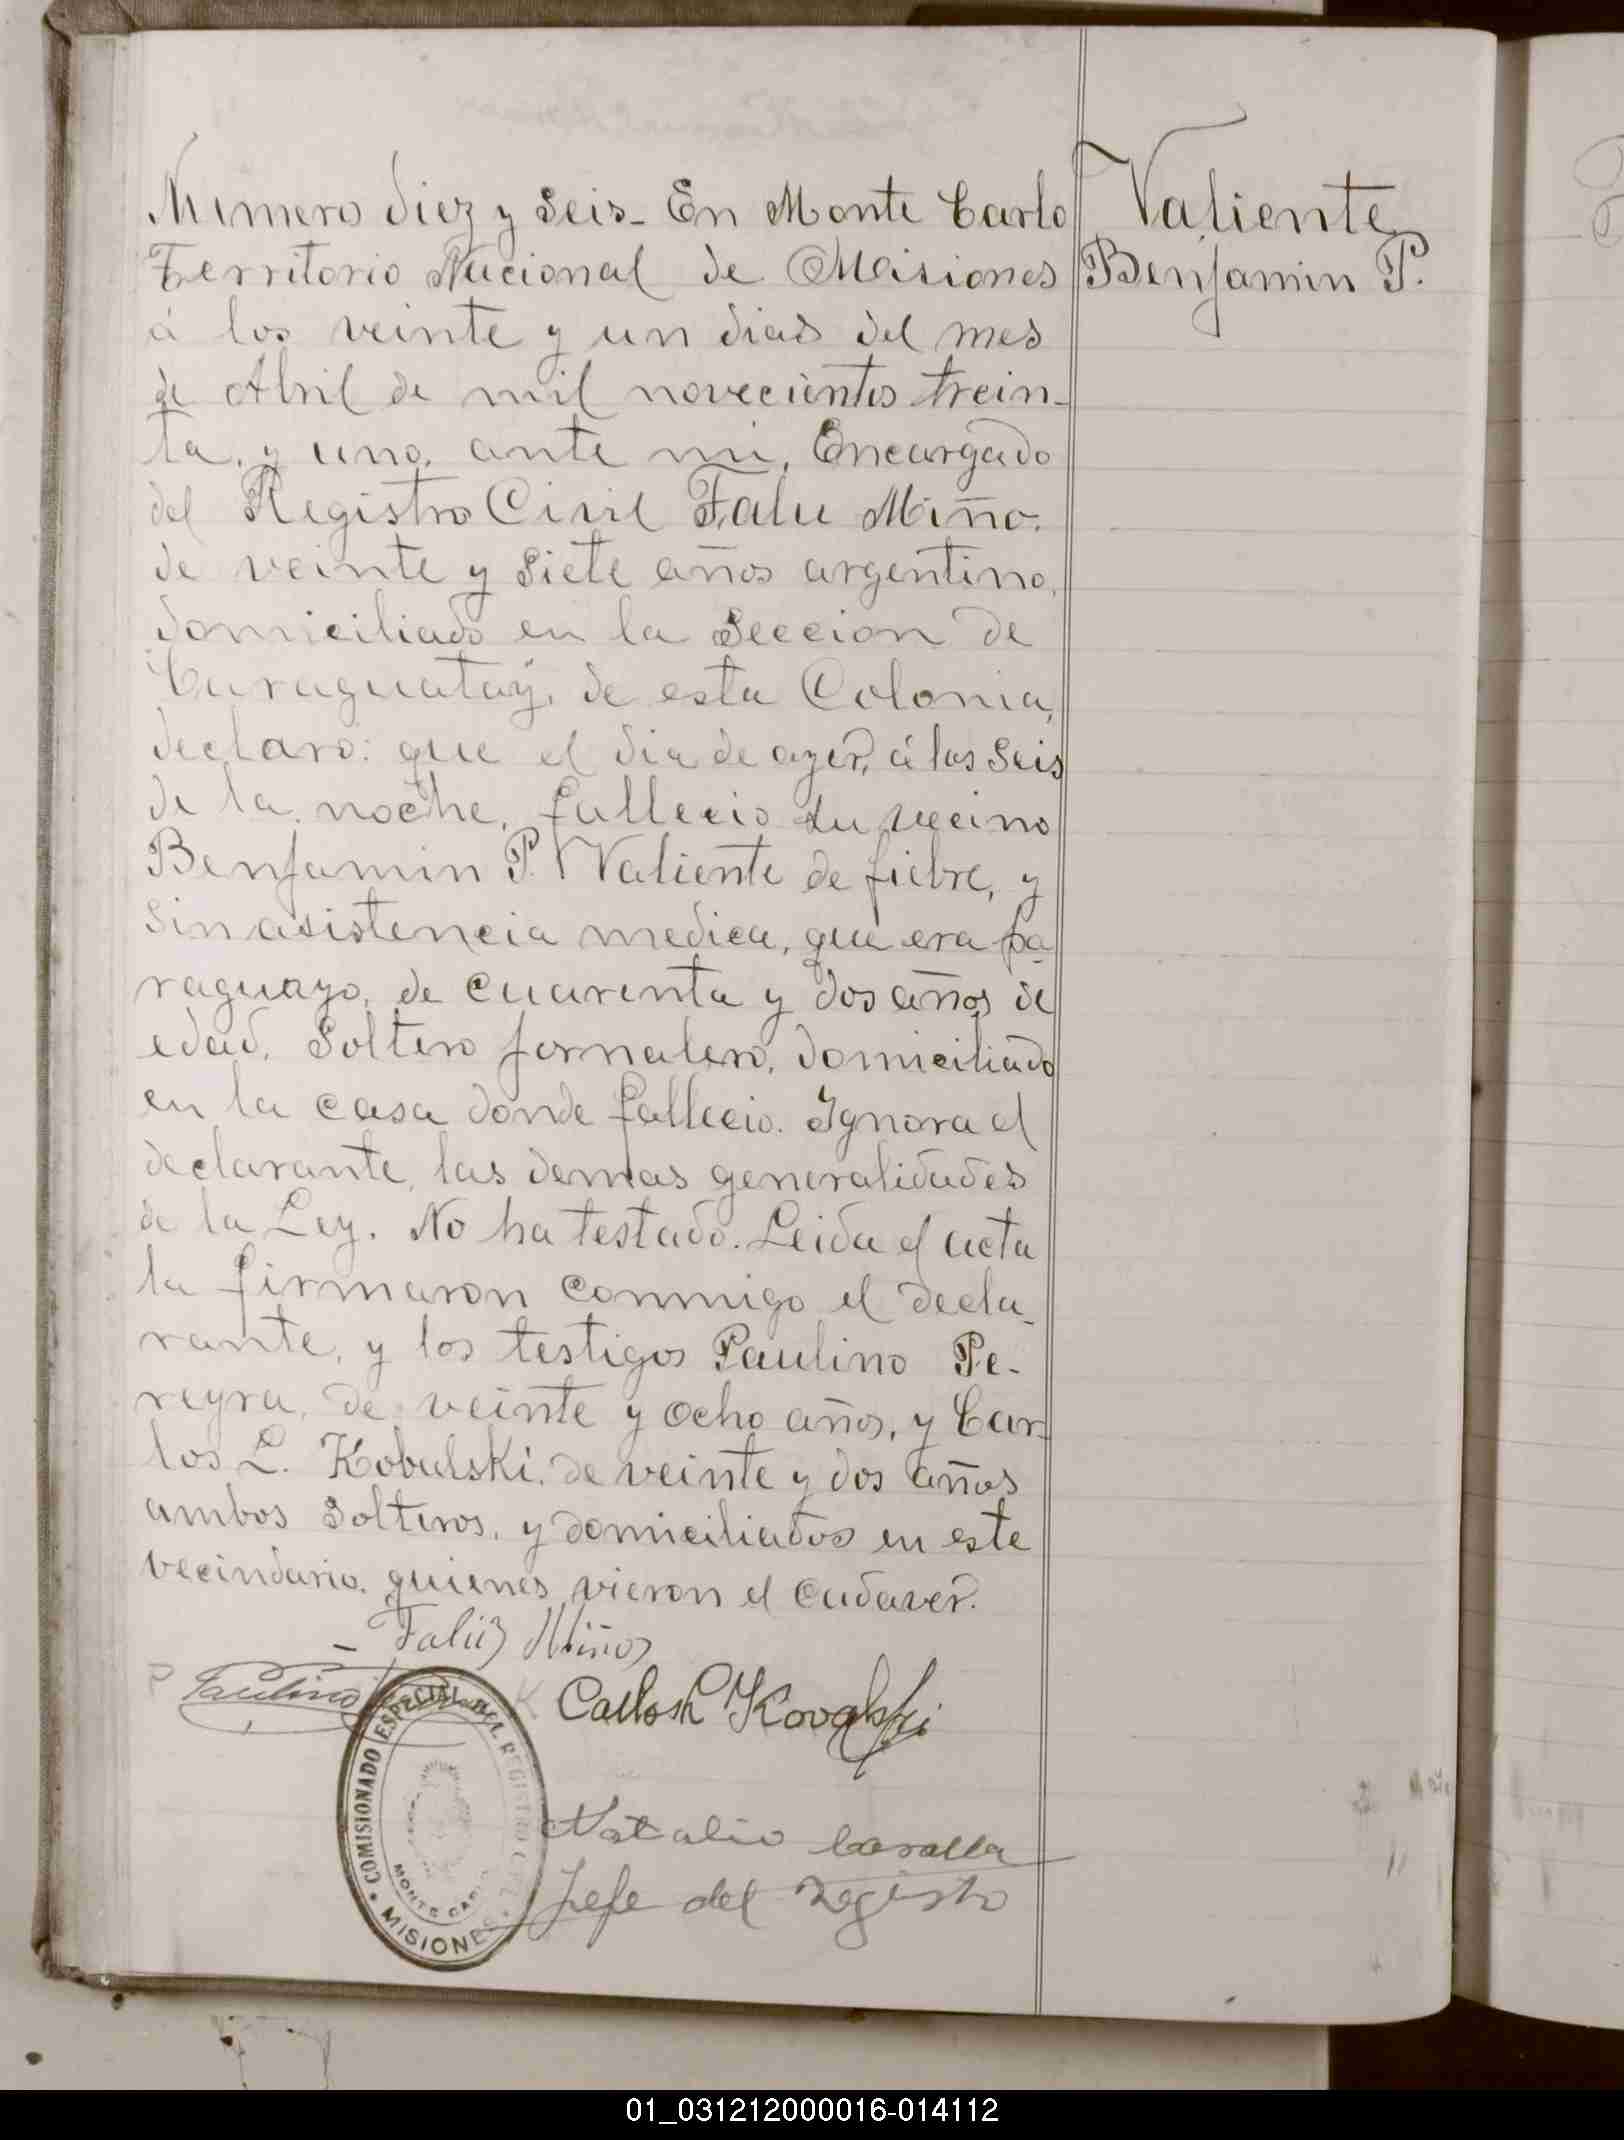 Numero diez y seis- En Monte Carlo
Territorio Nacional de Misiones
á los veinte y un dias del mes
de Abril de mil novecientos trein-
ta, y uno, ante mi, Encargado
del Registro Civil Falu Miño.
de veinte y siete años argentino,
domiciliado en la Seccion de
Caraguatay, de esta Colonia,
declaro: que el dia de ayer, á las seis
de la noche, fallecio su vecino
Benjamin P. Valiente de fiebre, y
sin asistencia medica, que era pa-
raguayo, de cuarenta y dos años de
edad, Soltero jornalero, domiciliado
en la casa donde fallecio. Ignora el
declarante, las demas generalidades
de la Ley. No ha testado. Leida el acta
la firmaron conmigo el decla-
rante, y los testigos Paulino Pe-
reyra, de veinte y ocho años, y Car-
los L. Kobalski, de veinte y dos años
ambos Solteros, y domiciliados en este
vecindario, quienes vieron el cadaver.
Valiente
Benjamin P.
Miños
Paulino
Carlos L Kovalski
Natalio
Jefe del Registro
COMISIONADO ESPECIAL DEL REGISTRO CIVIL
MONTE CARLO
MISIONES
01_031212000016-014112